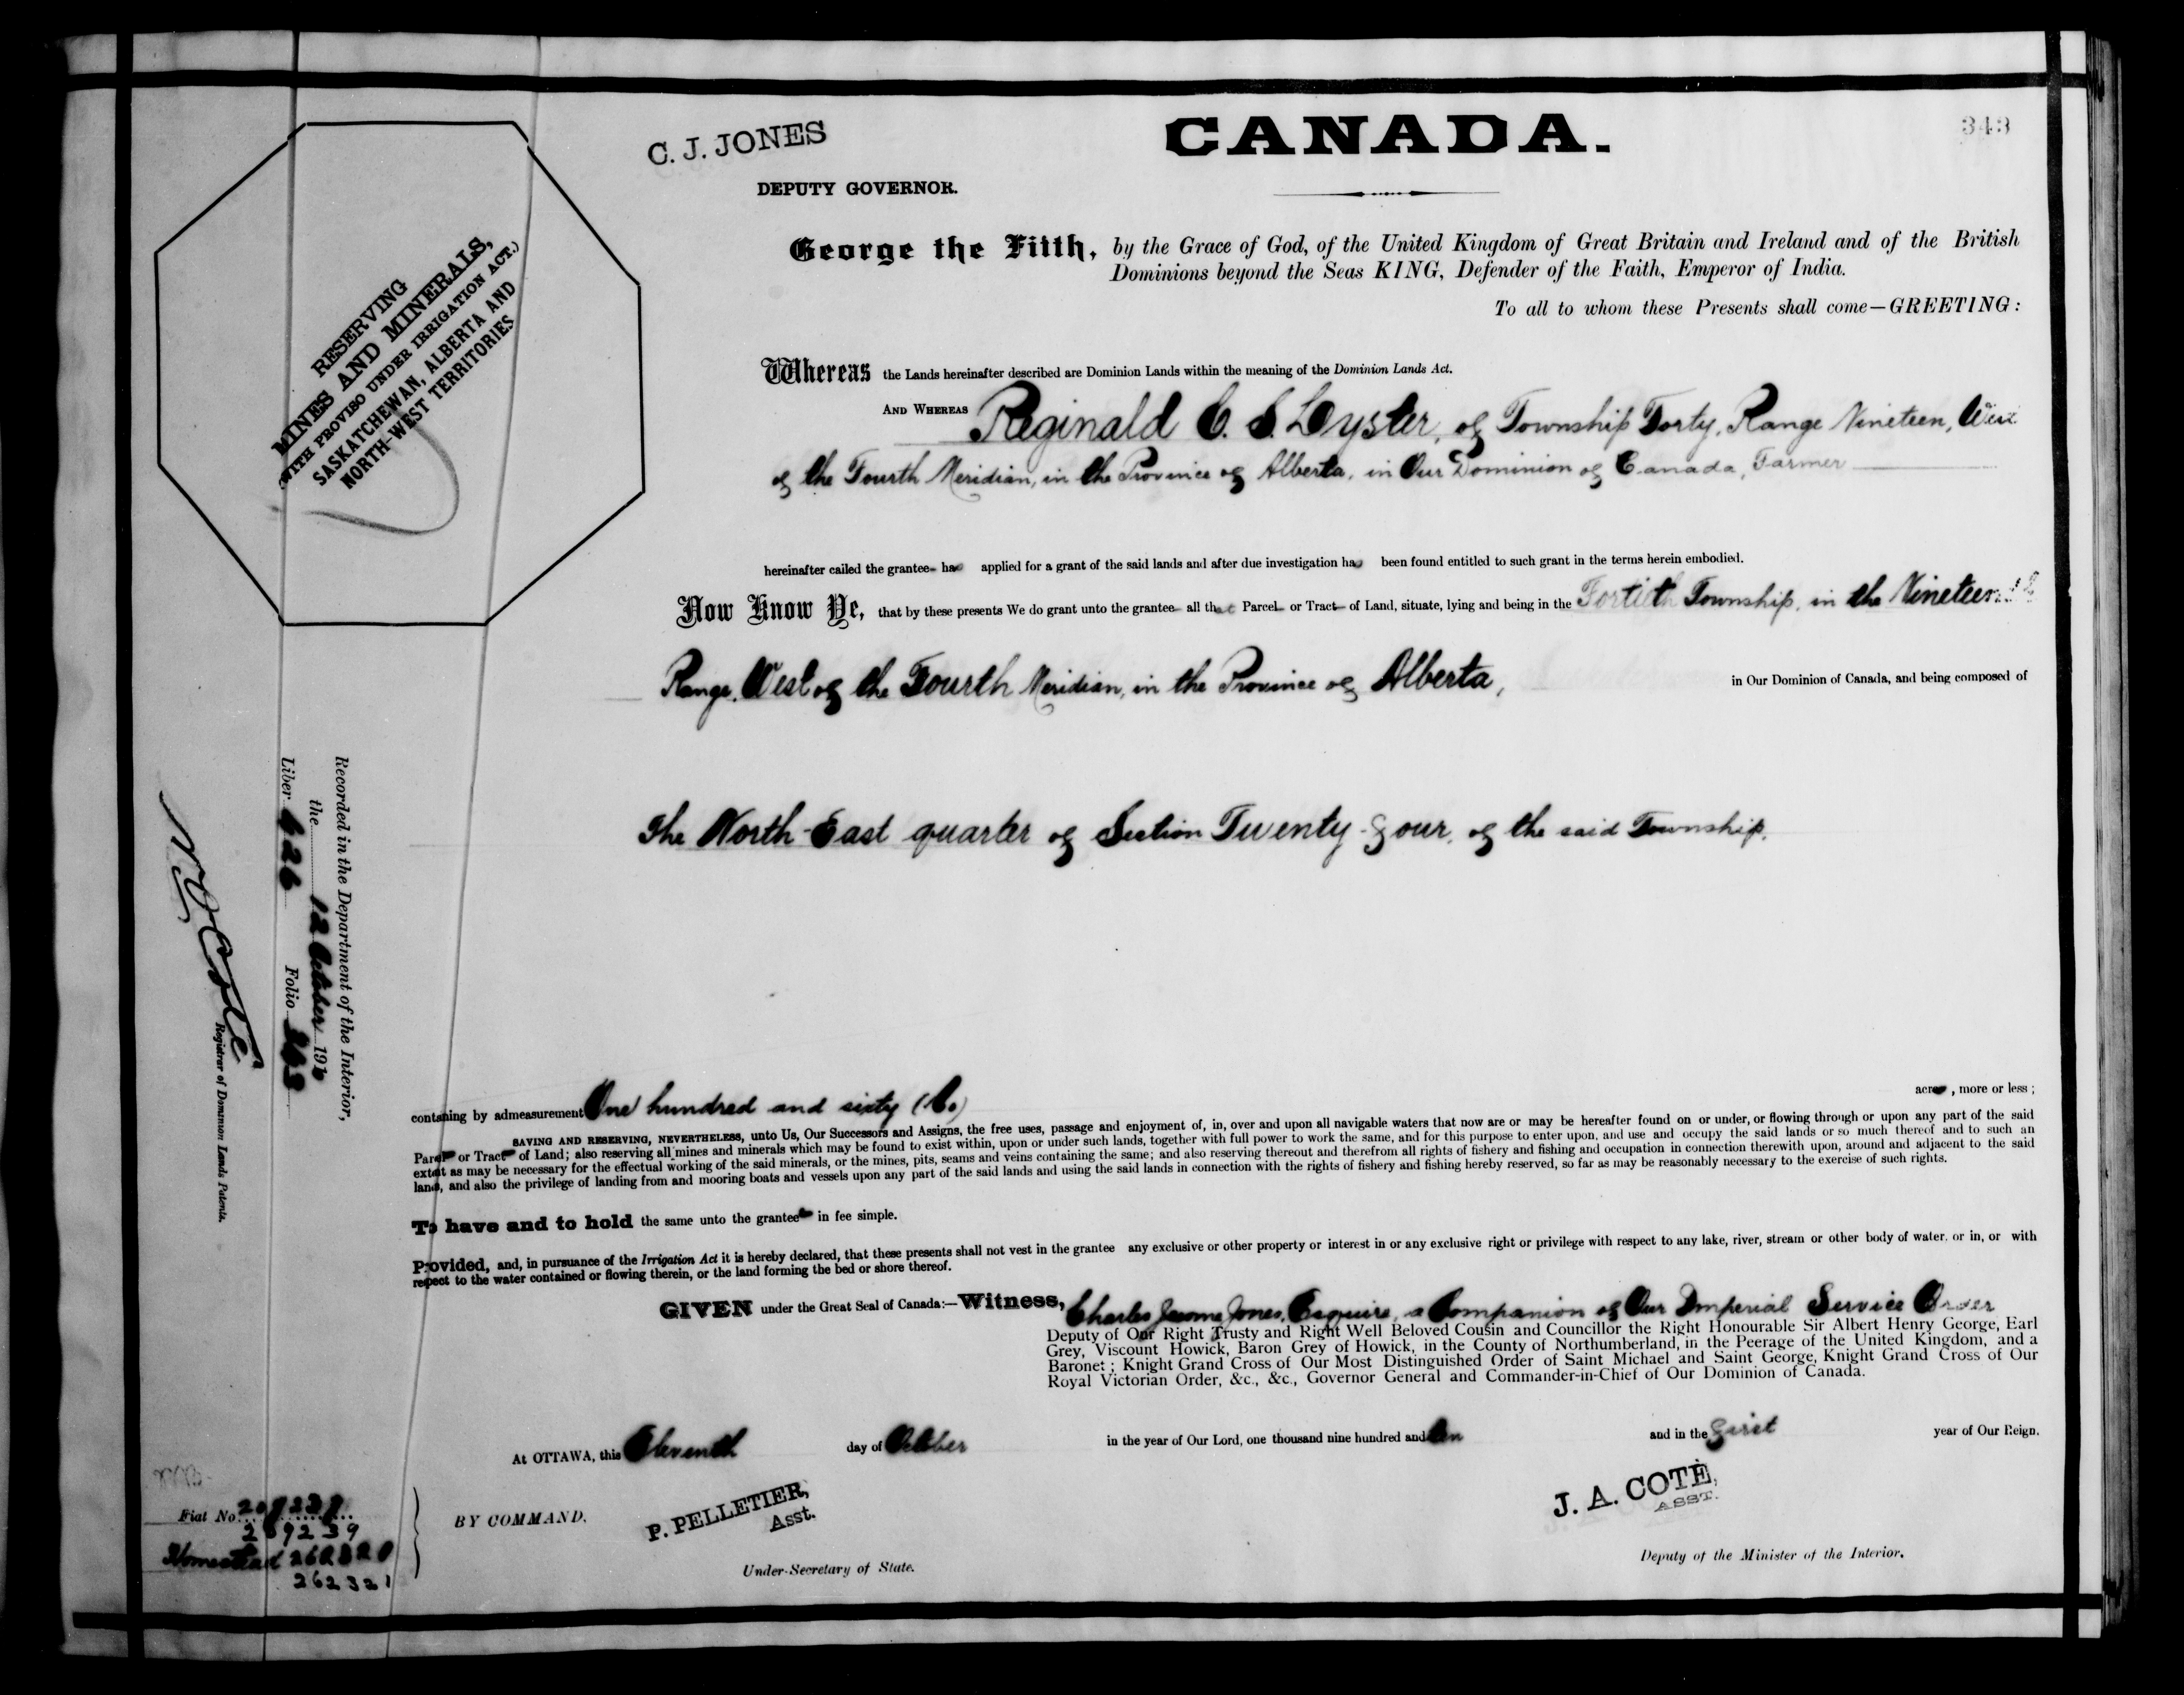 343
C. J. JONES
DEPUTY GOVERNOR.
CANADA.
George the Fifth, by the Grace of God, of the United Kingdom of Great Britain and Ireland and of the British
Dominions beyond the Seas KING, Defender of the Faith, Emperor of India.
To all to whom these Presents shall come—GREETING:
RESERVING
MINES AND MINERALS,
(WITH PROVISO UNDER IRRIGATION ACT.)
SASKATCHEWAN, ALBERTA AND
NORTH-WEST TERRITORIES
Whereas the Lands hereinafter described are Dominion Lands within the meaning of the Dominion Lands Act.
AND WHEREAS Reginald C. S. Lyster, of Township Forty, Range Nineteen, West
of the Fourth Meridian, in the Province of Alberta, in Our Dominion of Canada, Farmer
hereinafter called the grantee has applied for a grant of the said lands and after due investigation has been found entitled to such grant in the terms herein embodied.
Now Know Ye, that by these presents We do grant unto the grantee all that Parcel or Tract of Land, situate, lying and being in the Fortieth Township, in the Nineteenth
Range, West of the Fourth Meridian, in the Province of Alberta, in Our Dominion of Canada, and being composed of
The North-East quarter of Section Twenty-four, of the said Township.
contaning by admeasurement One hundred and sixty (160) acres, more or less;
SAVING AND RESERVING, NEVERTHELESS, unto Us, Our Successors and Assigns, the free uses, passage and enjoyment of, in, over and upon all navigable waters that now are or may be hereafter found on or under, or flowing through or upon any part of the said
Parcel or Tract of Land; also reserving all mines and minerals which may be found to exist within, upon or under such lands, together with full power to work the same, and for this purpose to enter upon, and use and occupy the said lands or so much thereof and to such an
extent as may be necessary for the effectual working of the said minerals, or the mines, pits, seams and veins containing the same; and also reserving thereout and therefrom all rights of fishery and fishing and occupation in connection therewith upon, around and adjacent to the said
lands, and also the privilege of landing from and mooring boats and vessels upon any part of the said lands and using the said lands in connection with the rights of fishery and fishing hereby reserved, so far as may be reasonably necessary to the exercise of such rights.
To have and to hold the same unto the grantee in fee simple.
Provided, and, in pursuance of the Irrigation Act it is hereby declared, that these presents shall not vest in the grantee any exclusive or other property or interest in or any exclusive right or privilege with respect to any lake, river, stream or other body of water, or in, or with
respect to the water contained or flowing therein, or the land forming the bed or shore thereof.
GIVEN under the Great Seal of Canada:—Witness, Charles Jerome Jones, Esquire, a Companion of Our Imperial Service Order
Deputy of Our Right Trusty and Right Well Beloved Cousin and Councillor the Right Honourable Sir Albert Henry George, Earl
Grey, Viscount Howick, Baron Grey of Howick, in the County of Northumberland, in the Peerage of the United Kingdom, and a
Baronet; Knight Grand Cross of Our Most Distinguished Order of Saint Michael and Saint George, Knight Grand Cross of Our
Royal Victorian Order, &c., &c., Governor General and Commander-in-Chief of Our Dominion of Canada.
At OTTAWA, this Eleventh day of October in the year of Our Lord, one thousand nine hundred and ten and in the first year of Our Reign.
BY COMMAND.
P. PELLETIER,
Asst.
Under-Secretary of State.
J. A. COTÉ,
ASST.
Deputy of the Minister of the Interior.
Recorded in the Department of the Interior,
the 12 October 1910
Liber 626 Folio 343
N. O. Coté
Registrar of Dominion Lands Patents.
Fiat No. 209238
209239
Homestead 262320
262321